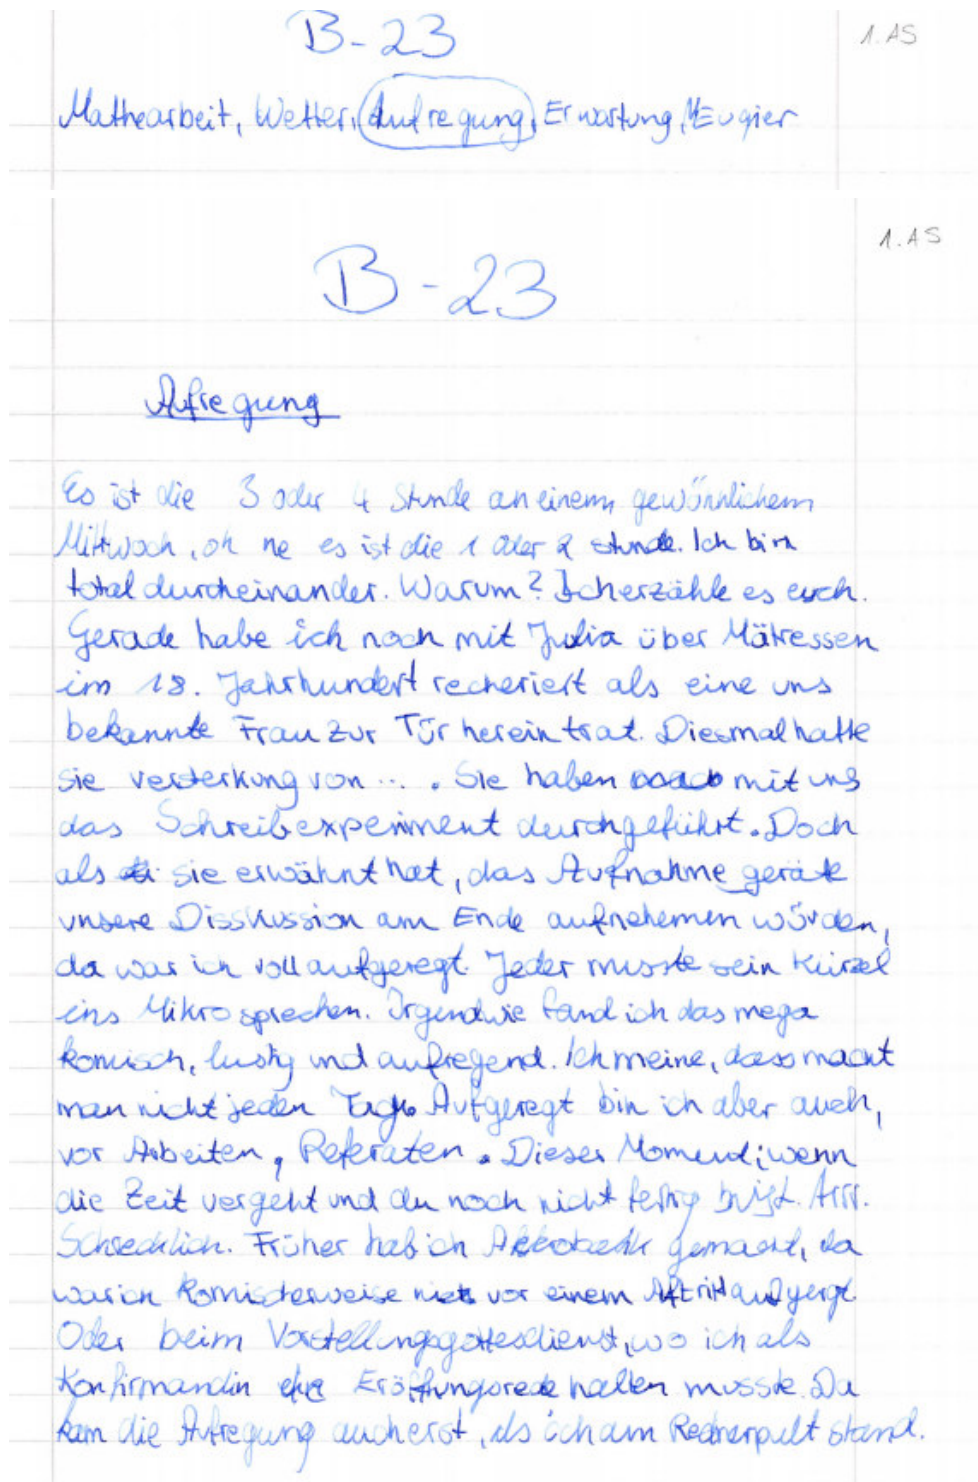 B-23
1. AS
Mathearbeit, Wetter, Aufregung, Erwartung, Neugier
1. AS
B-23
Aufregung
Es ist die 3 oder 4 Stunde an einem gewöhnlichem
Mittwoch, oh ne es ist die 1 oder 2 stunde. Ich bin
total durcheinander. Warum? Ich erzähle es euch.
Gerade habe ich noch mit Julia über Mätressen
im 18. Jahrhundert recheriert als eine uns
bekannte Frau zur Tür herein trat. Diesmal hatte
sie versterkung von ... . Sie haben mit uns
das Schreibexperiment durchgeführt. Doch
als sie erwähnt hat, das Aufnahme geräte
unsere Disskussion am Ende aufnehemen würden,
da war ich voll aufgeregt. Jeder musste sein Kürzel
ins Mikro sprechen. Irgendwie fand ich das mega
komisch, lustig und aufregend. Ich meine, dass macht
man nicht jeden Tag. Aufgeregt bin ich aber auch,
vor Arbeiten, Referaten. Dieser Moment, wenn
die Zeit vergeht und du noch nicht fertig bist. Arrr.
Schrecklich. Früher hab ich Akrobatik gemacht, da
war ich komischerweise nie vor einem Aftritt aufgergt
Oder beim Vorstellungsgottesdienst, wo ich als
Konfirmandin eine Eröffnungsrede halten musste. Da
kam die Aufregung auch erst, als ich am Rednerpult stand.